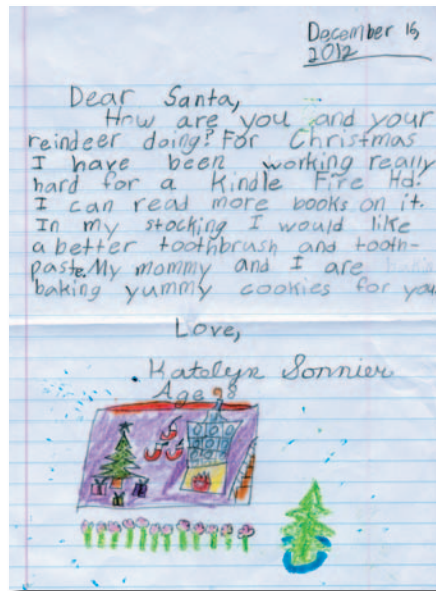 December 15,
2012
Dear Santa,
How are you and your
reindeer doing? For Christmas
I have been working really
hard for a Kindle Fire Hd.
I can read more books on it.
In my stocking I would like
a better toothbrush and tooth-
paste. My mommy and I are
baking yummy cookies for you.
Love,
Katelyn Sonnier
Age 8